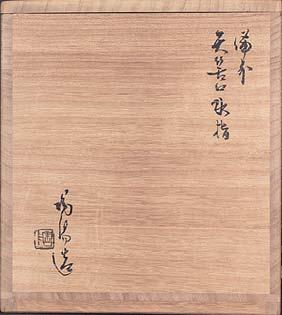 備前
矢筈口水指
陶陽造